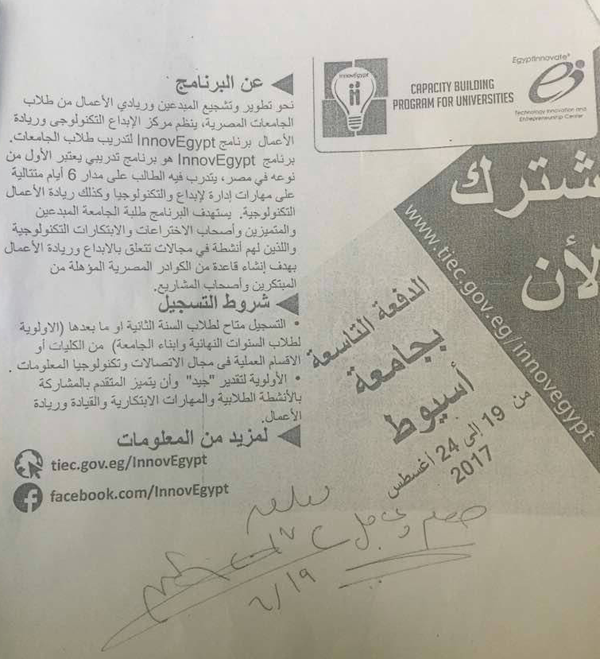 InnovEgypt
CAPACITY BUILDING
PROGRAM FOR UNIVERSITIES
EgyptInnovate
Technology Innovation and
Entrepreneurship Center
شترك
الأن
www.tiec.gov.eg/innovegypt
الدفعة التاسعة
بجامعة
أسيوط
من 19 إلى 24 أغسطس
2017
عن البرنامج
نحو تطوير وتشجيع المبدعين وريادي الأعمال من طلاب
الجامعات المصرية، ينظم مركز الإبداع التكنولوجى وريادة
الأعمال برنامج InnovEgypt لتدريب طلاب الجامعات.
برنامج InnovEgypt هو برنامج تدريبي يعتبر الأول من
نوعه في مصر، يتدرب فيه الطالب على مدار 6 أيام متتالية
على مهارات إدارة لإبداع والتكنولوجيا وكذلك ريادة الأعمال
التكنولوجية. يستهدف البرنامج طلبة الجامعة المبدعين
والمتميزين وأصحاب الاختراعات والابتكارات التكنولوجية
واللذين لهم أنشطة في مجالات تتعلق بالابداع وريادة الأعمال
بهدف إنشاء قاعدة من الكوادر المصرية المؤهلة من
المبتكرين وأصحاب المشاريع.
شروط التسجيل
• التسجيل متاح لطلاب السنة الثانية او ما بعدها (الاولوية
لطلاب السنوات النهائية وابناء الجامعة) من الكليات أو
الاقسام العملية فى مجال الاتصالات وتكنولوجيا المعلومات .
• الأولوية لتقدير "جيد" وأن يتميز المتقدم بالمشاركة
بالأنشطة الطلابية والمهارات الابتكارية والقيادة وريادة
الأعمال.
لمزيد من المعلومات
tiec.gov.eg/InnovEgypt
facebook.com/InnovEgypt